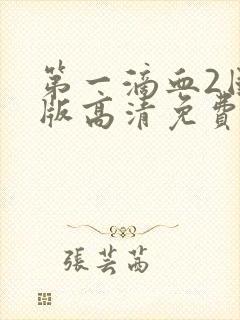 第一滴血2国
版高清免費
張芸茜